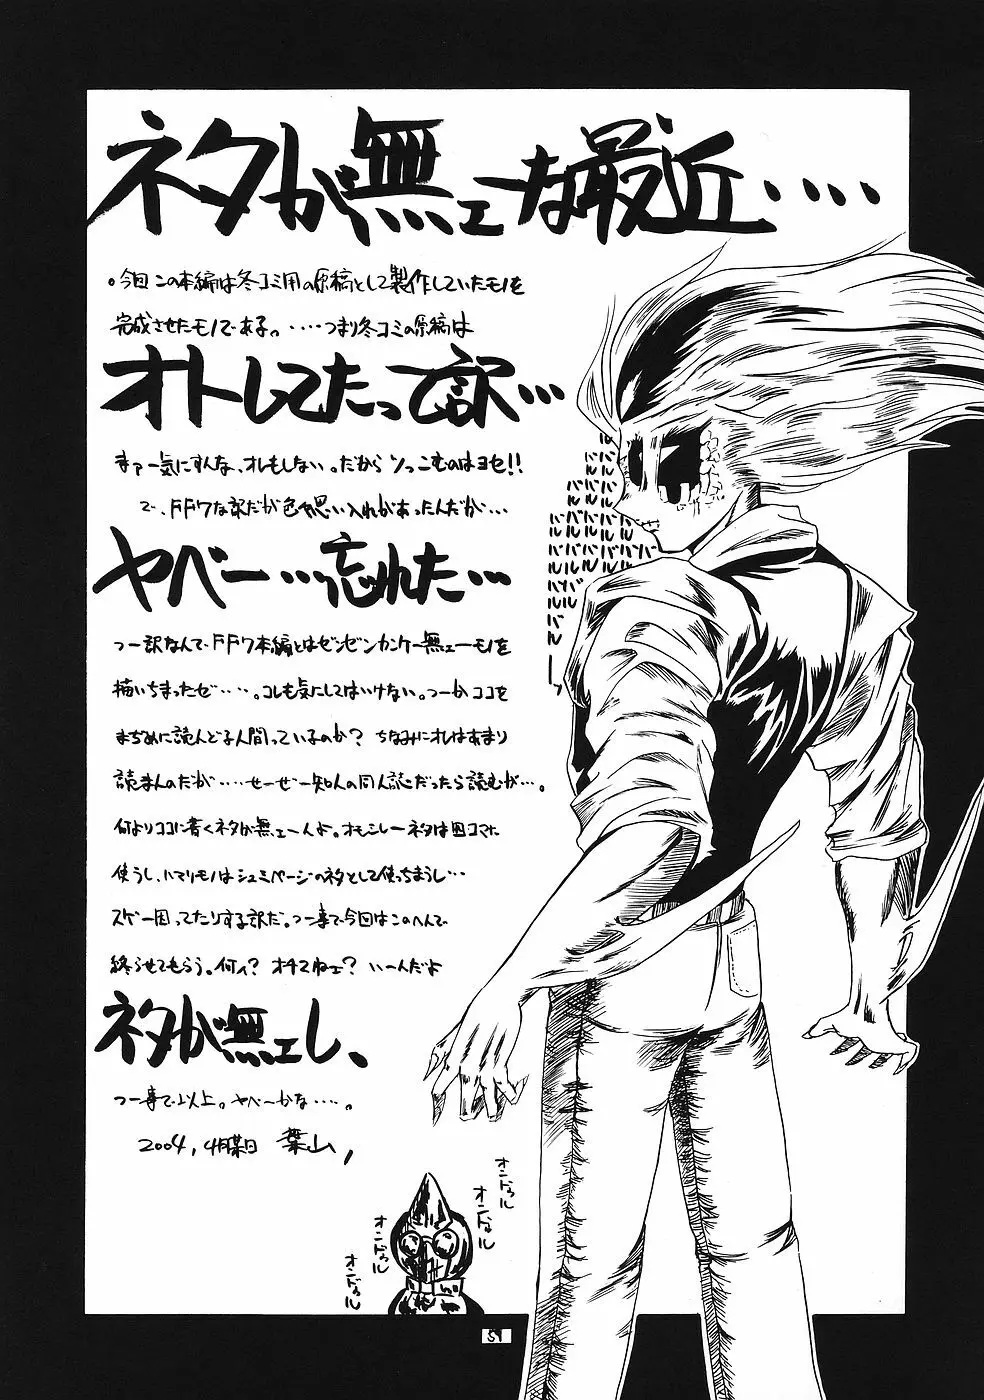 ネタが無ェーな最近・・・・
。今回この本編は冬コミ用の原稿として製作していたモノを
完成させたモノである。・・・・つまり冬コミの原稿は
オトしてたって訳・・・
まァ一気にすんな、オレもしない。だからツっこむのはヨセ!!
で、FF7な訳だが色々思い入れがあったんだが・・・
ヤベー・・・忘れた・・・
つー訳なんで、FF7本編とはゼンゼンカンケー無ェーモノを
描いちまったゼ・・・・。コレも気にしてはいけない。つーかココを
まぢめに読んどる人間っているのか? ちなみにオレはあまり
読まんのだが・・・・・せーぜー知人の同人誌だったら読むが・・・。
何よりココに書くネタが無ェーんよ。オモシレーネタは四コマに
使うし、ハマリモノはシュミページのネタとして使っちまうし・・・
スゲー困ってたりする訳だ。つー事で今回はこのへんで
終らせてもらう。何ィ? オチてねェ? いーんだよ
ネタが無ェし、
つー事で以上。ヤベーかな・・・・。
2004,4月某日 葉山,
バル バル バル バル バル バル バル バル バル バル バル バル
オンドゥル
オンドゥル
オンドゥル
オンドゥル
51